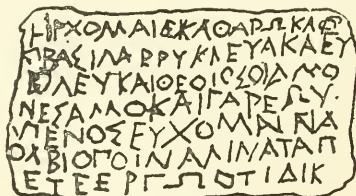 ΗΡΧΟΜΑΙΕΚΑΘΑΡΩΚΑΘ
ΒΑΣΙΛΑΡΡΥΚΛΕΥΑΚΑΕΥ
ΒΟΛΕΥΚΑΙΘΕΟΙΟΣΟΙΔΜΟ
ΝΕΣΑΛΛΟΚΑΙΓΑΡΕΩΥ·
ΥΠΕΝΟΣΕΥΧΟΜΑΙΝΑ
ΟΛΒΙΟΠΟΙΝΑΛΙΝΑΤΑΠ
ΕΤΕΕΡΓΩΟΤΙΔΙΚ